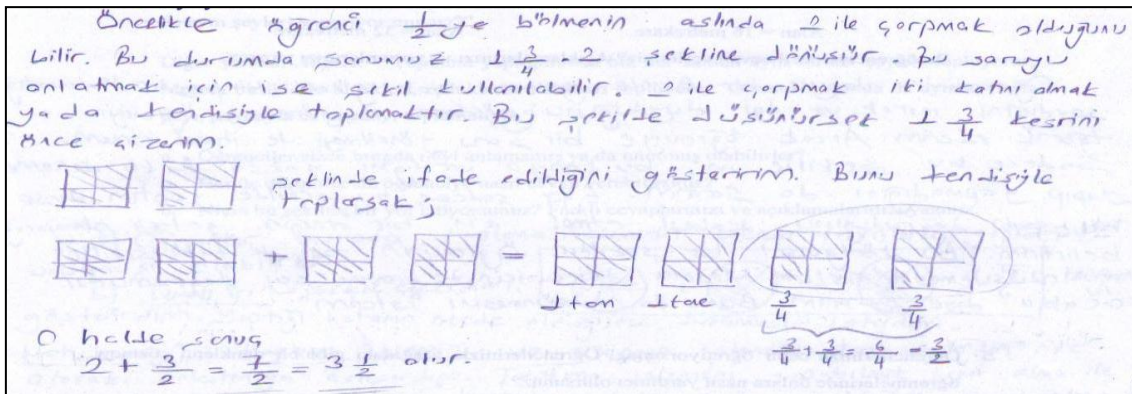 Öncelikle öğrenci 1/2 ye bölmenin aslında 2 ile çarpmak olduğunu
bilir. Bu durumda sorumuz 1 3/4 . 2 şekline dönüşür. Bu soruyu
anlatmak için ise şekil kullanılabilir. 2 ile çarpmak iki katını almak
ya da kendisiyle toplamaktır. Bu şekilde düşünürsek 1 3/4 kesrini
önce çizerim.
şeklinde ifade edildiğini gösteririm. Bunu kendisiyle
toplarsak;
+ =
1 tam 1 tane 3/4 3/4
3/4 + 3/4 = 6/4 = 3/2
O halde sonuç
2 + 3/2 = 7/2 = 3 1/2 olur.